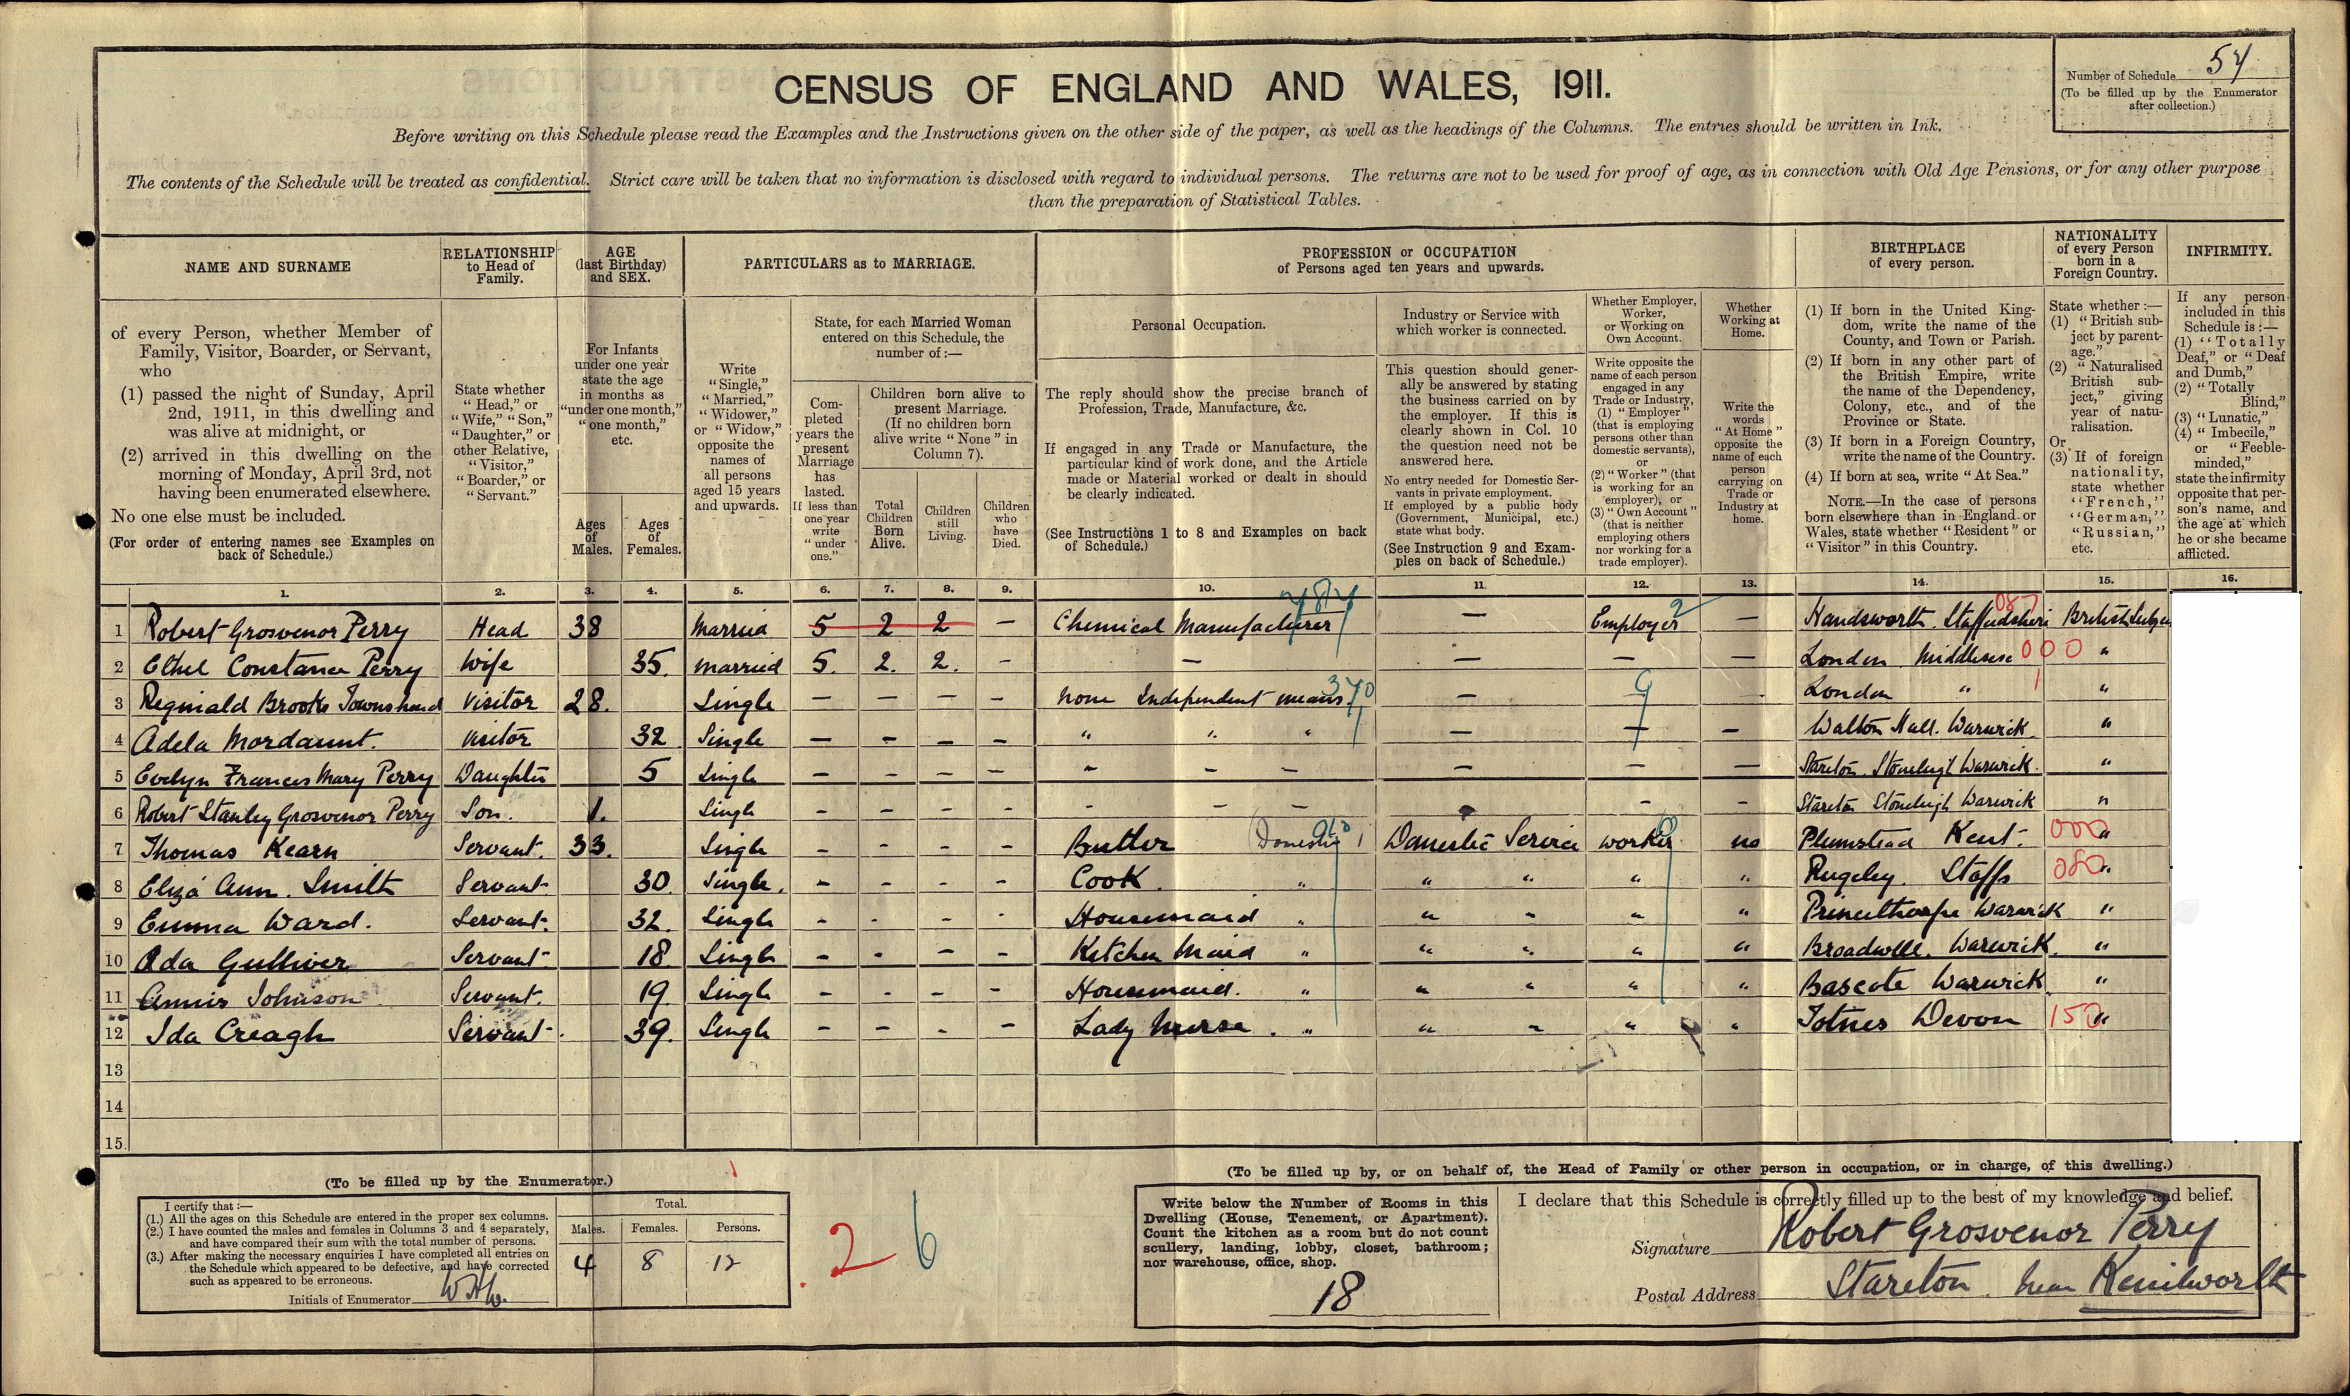 CENSUS OF ENGLAND AND WALES, 1911.
Number of Schedule 54
(To be filled up by the Enumerator
after collection.)
Before writing on this Schedule please read the Examples and the Instructions given on the other side of the paper, as well as the headings of the Columns. The entries should be written in Ink.
The contents of the Schedule will be treated as confidential. Strict care will be taken that no information is disclosed with regard to individual persons. The returns are not to be used for proof of age, as in connection with Old Age Pensions, or for any other purpose
than the preparation of Statistical Tables.
NAME AND SURNAME
of every Person, whether Member of
Family, Visitor, Boarder, or Servant,
who
(1) passed the night of Sunday, April
2nd, 1911, in this dwelling and
was alive at midnight, or
(2) arrived in this dwelling on the
morning of Monday, April 3rd, not
having been enumerated elsewhere.
No one else must be included.
(For order of entering names see Examples on
back of Schedule.)
RELATIONSHIP
to Head of
Family.
State whether
"Head," or
"Wife," "Son,"
"Daughter," or
other Relative,
"Visitor,"
"Boarder," or
"Servant."
AGE
(last Birthday)
and SEX.
For Infants
under one year
state the age
in months as
"under one month,"
"one month,"
etc.
Ages
of
Males.
Ages
of
Females.
PARTICULARS as to MARRIAGE.
Write
"Single,"
"Married,"
"Widower,"
or "Widow,"
opposite the
names of
all persons
aged 15 years
and upwards.
State, for each Married Woman
entered on this Schedule, the
number of:—
Com-
pleted
years the
present
Marriage
has
lasted.
If less than
one year
write
"under
one."
Children born alive to
present Marriage.
(If no children born
alive write "None" in
Column 7).
Total
Children
Born
Alive.
Children
still
Living.
Children
who
have
Died.
PROFESSION or OCCUPATION
of Persons aged ten years and upwards.
Personal Occupation.
The reply should show the precise branch of
Profession, Trade, Manufacture, &c.
If engaged in any Trade or Manufacture, the
particular kind of work done, and the Article
made or Material worked or dealt in should
be clearly indicated.
(See Instructions 1 to 8 and Examples on back
of Schedule.)
Industry or Service with
which worker is connected.
This question should gener-
ally be answered by stating
the business carried on by
the employer. If this is
clearly shown in Col. 10
the question need not be
answered here.
No entry needed for Domestic Ser-
vants in private employment.
If employed by a public body
(Government, Municipal, etc.)
state what body.
(See Instruction 9 and Exam-
ples on back of Schedule.)
Whether Employer,
Worker,
or Working on
Own Account.
Write opposite the
name of each person
engaged in any
Trade or Industry,
(1) "Employer"
(that is employing
persons other than
domestic servants),
or
(2) "Worker" (that
is working for an
employer), or
(3) "Own Account"
(that is neither
employing others
nor working for a
trade employer).
Whether
Working at
Home.
Write the
words
"At Home"
opposite the
name of each
person
carrying on
Trade or
Industry at
home.
BIRTHPLACE
of every person.
(1) If born in the United King-
dom, write the name of the
County, and Town or Parish.
(2) If born in any other part of
the British Empire, write
the name of the Dependency,
Colony, etc., and of the
Province or State.
(3) If born in a Foreign Country,
write the name of the Country.
(4) If born at sea, write "At Sea."
NOTE.—In the case of persons
born elsewhere than in England or
Wales, state whether "Resident" or
"Visitor" in this Country.
NATIONALITY
of every Person
born in a
Foreign Country.
State whether :—
(1) "British sub-
ject by parent-
age."
(2) "Naturalised
British sub-
ject," giving
year of natu-
ralisation.
Or
(3) If of foreign
nationality,
state whether
"French,"
"German,"
"Russian,"
etc.
INFIRMITY.
If any person
included in this
Schedule is :—
(1) "Totally
Deaf," or "Deaf
and Dumb,"
(2) "Totally
Blind,"
(3) "Lunatic,"
(4) "Imbecile,"
or "Feeble-
minded,"
state the infirmity
opposite that per-
son's name, and
the age at which
he or she became
afflicted.
1. 2. 3. 4. 5. 6. 7. 8. 9. 10. 11. 12. 13. 14. 15. 16.
1 Robert Grosvenor Perry Head 38 Married 5 2 2 — Chemical Manufacturer — Employer 2 — Handsworth. Staffordshire 087 British Subject
2 Ethel Constance Perry Wife 35. married 5. 2. 2. – — — — — London Middlesex 000 "
3 Reginald Brooke Townshend Visitor 28. Single — — — — none Independent means 370 — 9 London " "
4 Adela Mordaunt. Visitor 32 Single — — — — " " " — — — Walton Hall. Warwick "
5 Evelyn Frances Mary Perry Daughter 5 Single — — — — — — — — — — Stareton. Stoneleigh Warwick. "
6 Robert Stanley Grosvenor Perry Son. 1. Single – – – – – – – – – Stareton Stoneleigh Warwick "
7 Thomas Kearn Servant. 33. Single – – – – Butler (Domestic) Domestic Service worker no Plumstead Kent. 000 "
8 Eliza Ann. Smith Servant 30. Single. – – – – Cook. " " " " " Rugeley. Staffs 080 "
9 Emma Ward. Servant. 32. Single – – – – Housemaid " " " " " Princethorpe Warwick "
10 Ada Gulliver Servant 18 Single – – – – Kitchen Maid " " " " " Broadwell. Warwick. "
11 Annie Johnson Servant. 19. Single – – – – Housemaid. " " " " " Bascote Warwick. "
12 Ida Creagh Servant. 39. Single – – – – Lady Nurse. " " " " " Totnes Devon 150 "
13
14
15.
(To be filled up by the Enumerator.)
I certify that :—
(1.) All the ages on this Schedule are entered in the proper sex columns.
(2.) I have counted the males and females in Columns 3 and 4 separately,
and have compared their sum with the total number of persons.
(3.) After making the necessary enquiries I have completed all entries on
the Schedule which appeared to be defective, and have corrected
such as appeared to be erroneous.
Initials of Enumerator
Total.
Males. Females. Persons.
4 8 12
2 6
(To be filled up by, or on behalf of, the Head of Family or other person in occupation, or in charge, of this dwelling.)
Write below the Number of Rooms in this
Dwelling (House, Tenement, or Apartment).
Count the kitchen as a room but do not count
scullery, landing, lobby, closet, bathroom;
nor warehouse, office, shop.
18
I declare that this Schedule is correctly filled up to the best of my knowledge and belief.
Signature Robert Grosvenor Perry
Postal Address Stareton. near Kenilworth